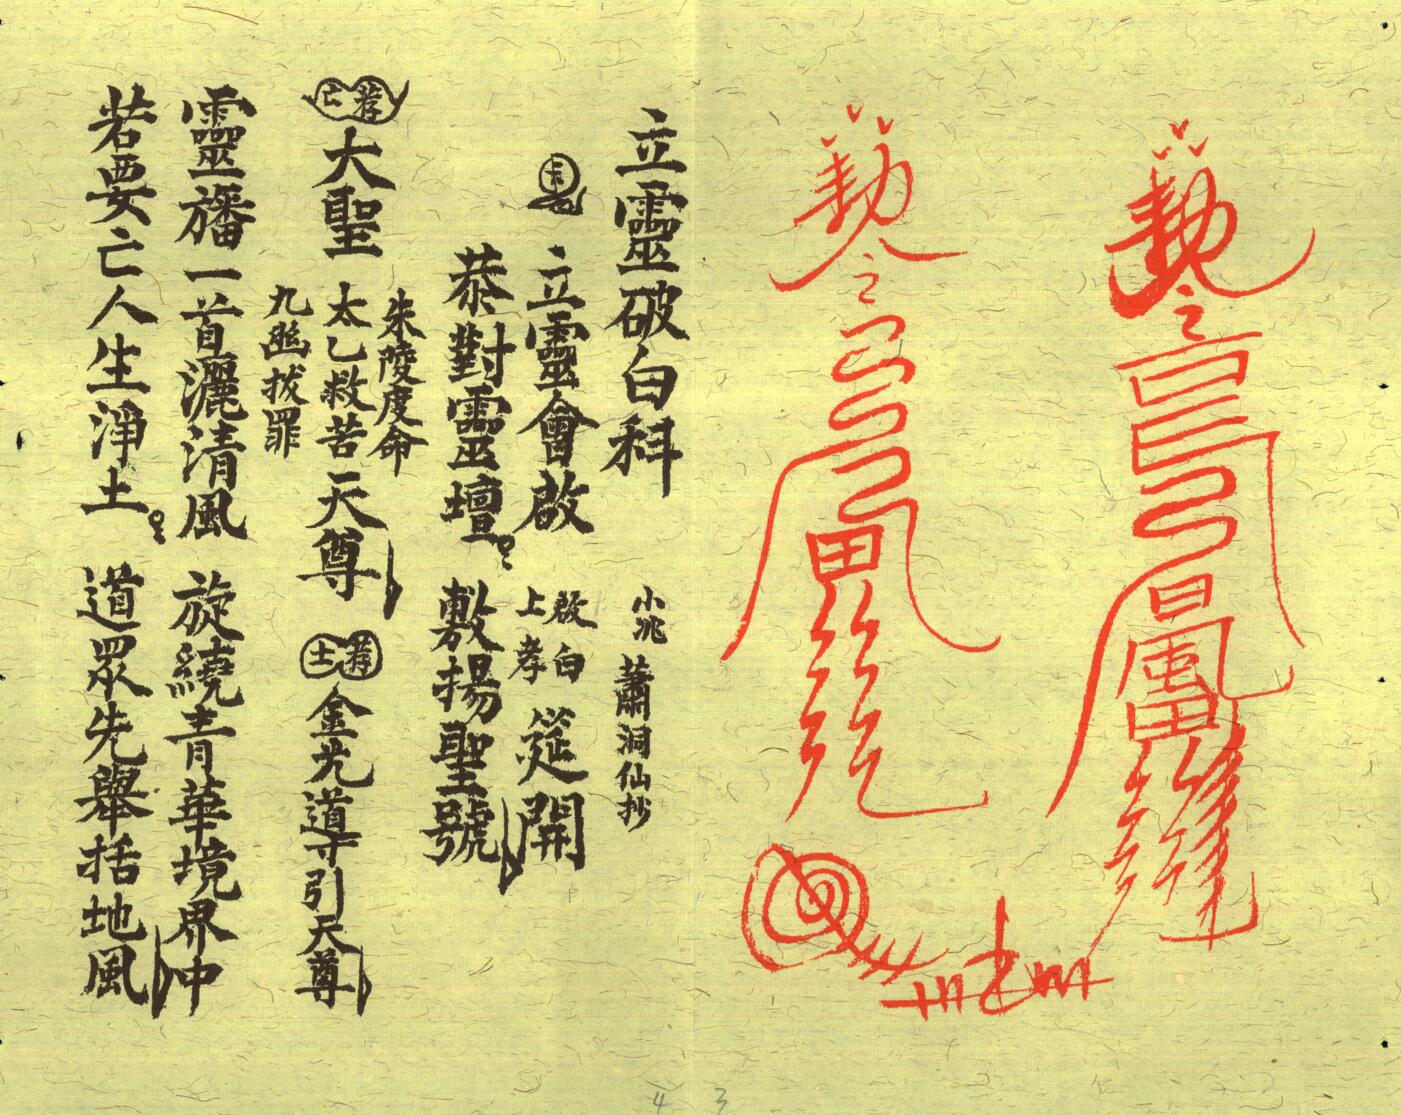 勅令
勅令
立靈破白科
小兆 蕭洞仙抄
立靈會啟 啟白上孝 筵開
恭對靈壇 敷揚聖號
荐亡 大聖
朱陵度命
太乙救苦 天尊
九幽拔罪
荐士 金光導引天尊
靈旛一首灑清風 旋繞青華境界中
若要亡人生淨土 道眾先舉括地風
4 3